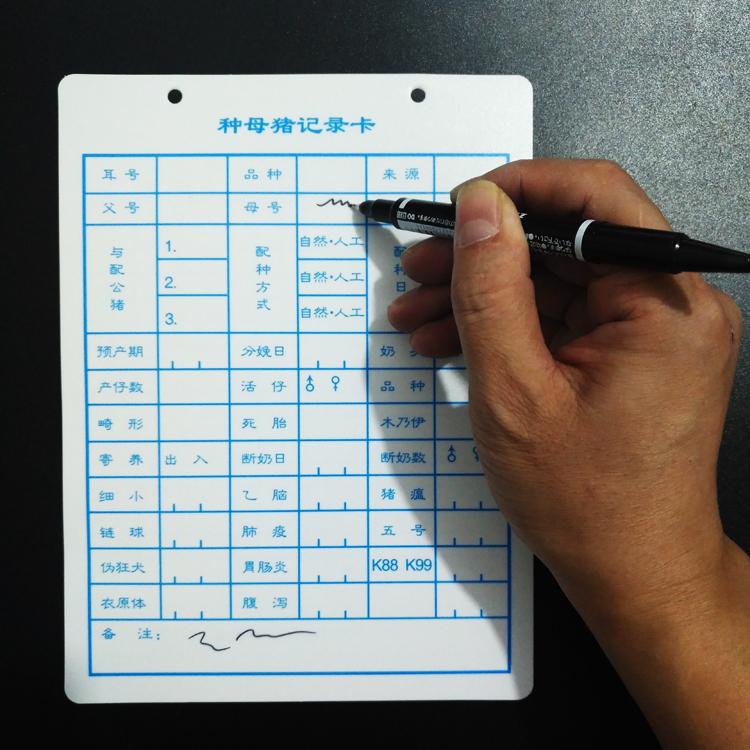 种母猪记录卡
耳号 品种 来源
父号 母号
与配公猪 1. 配种方式 自然·人工 配种日
2. 自然·人工
3. 自然·人工
预产期 分娩日 奶
产仔数 活仔 ♂ ♀ 品种
畸形 死胎 木乃伊
寄养 出 入 断奶日 断奶数 ♂
细小 乙脑 猪瘟
链球 肺疫 五号
伪狂犬 胃肠炎 K88 K99
衣原体 腹泻
备 注: